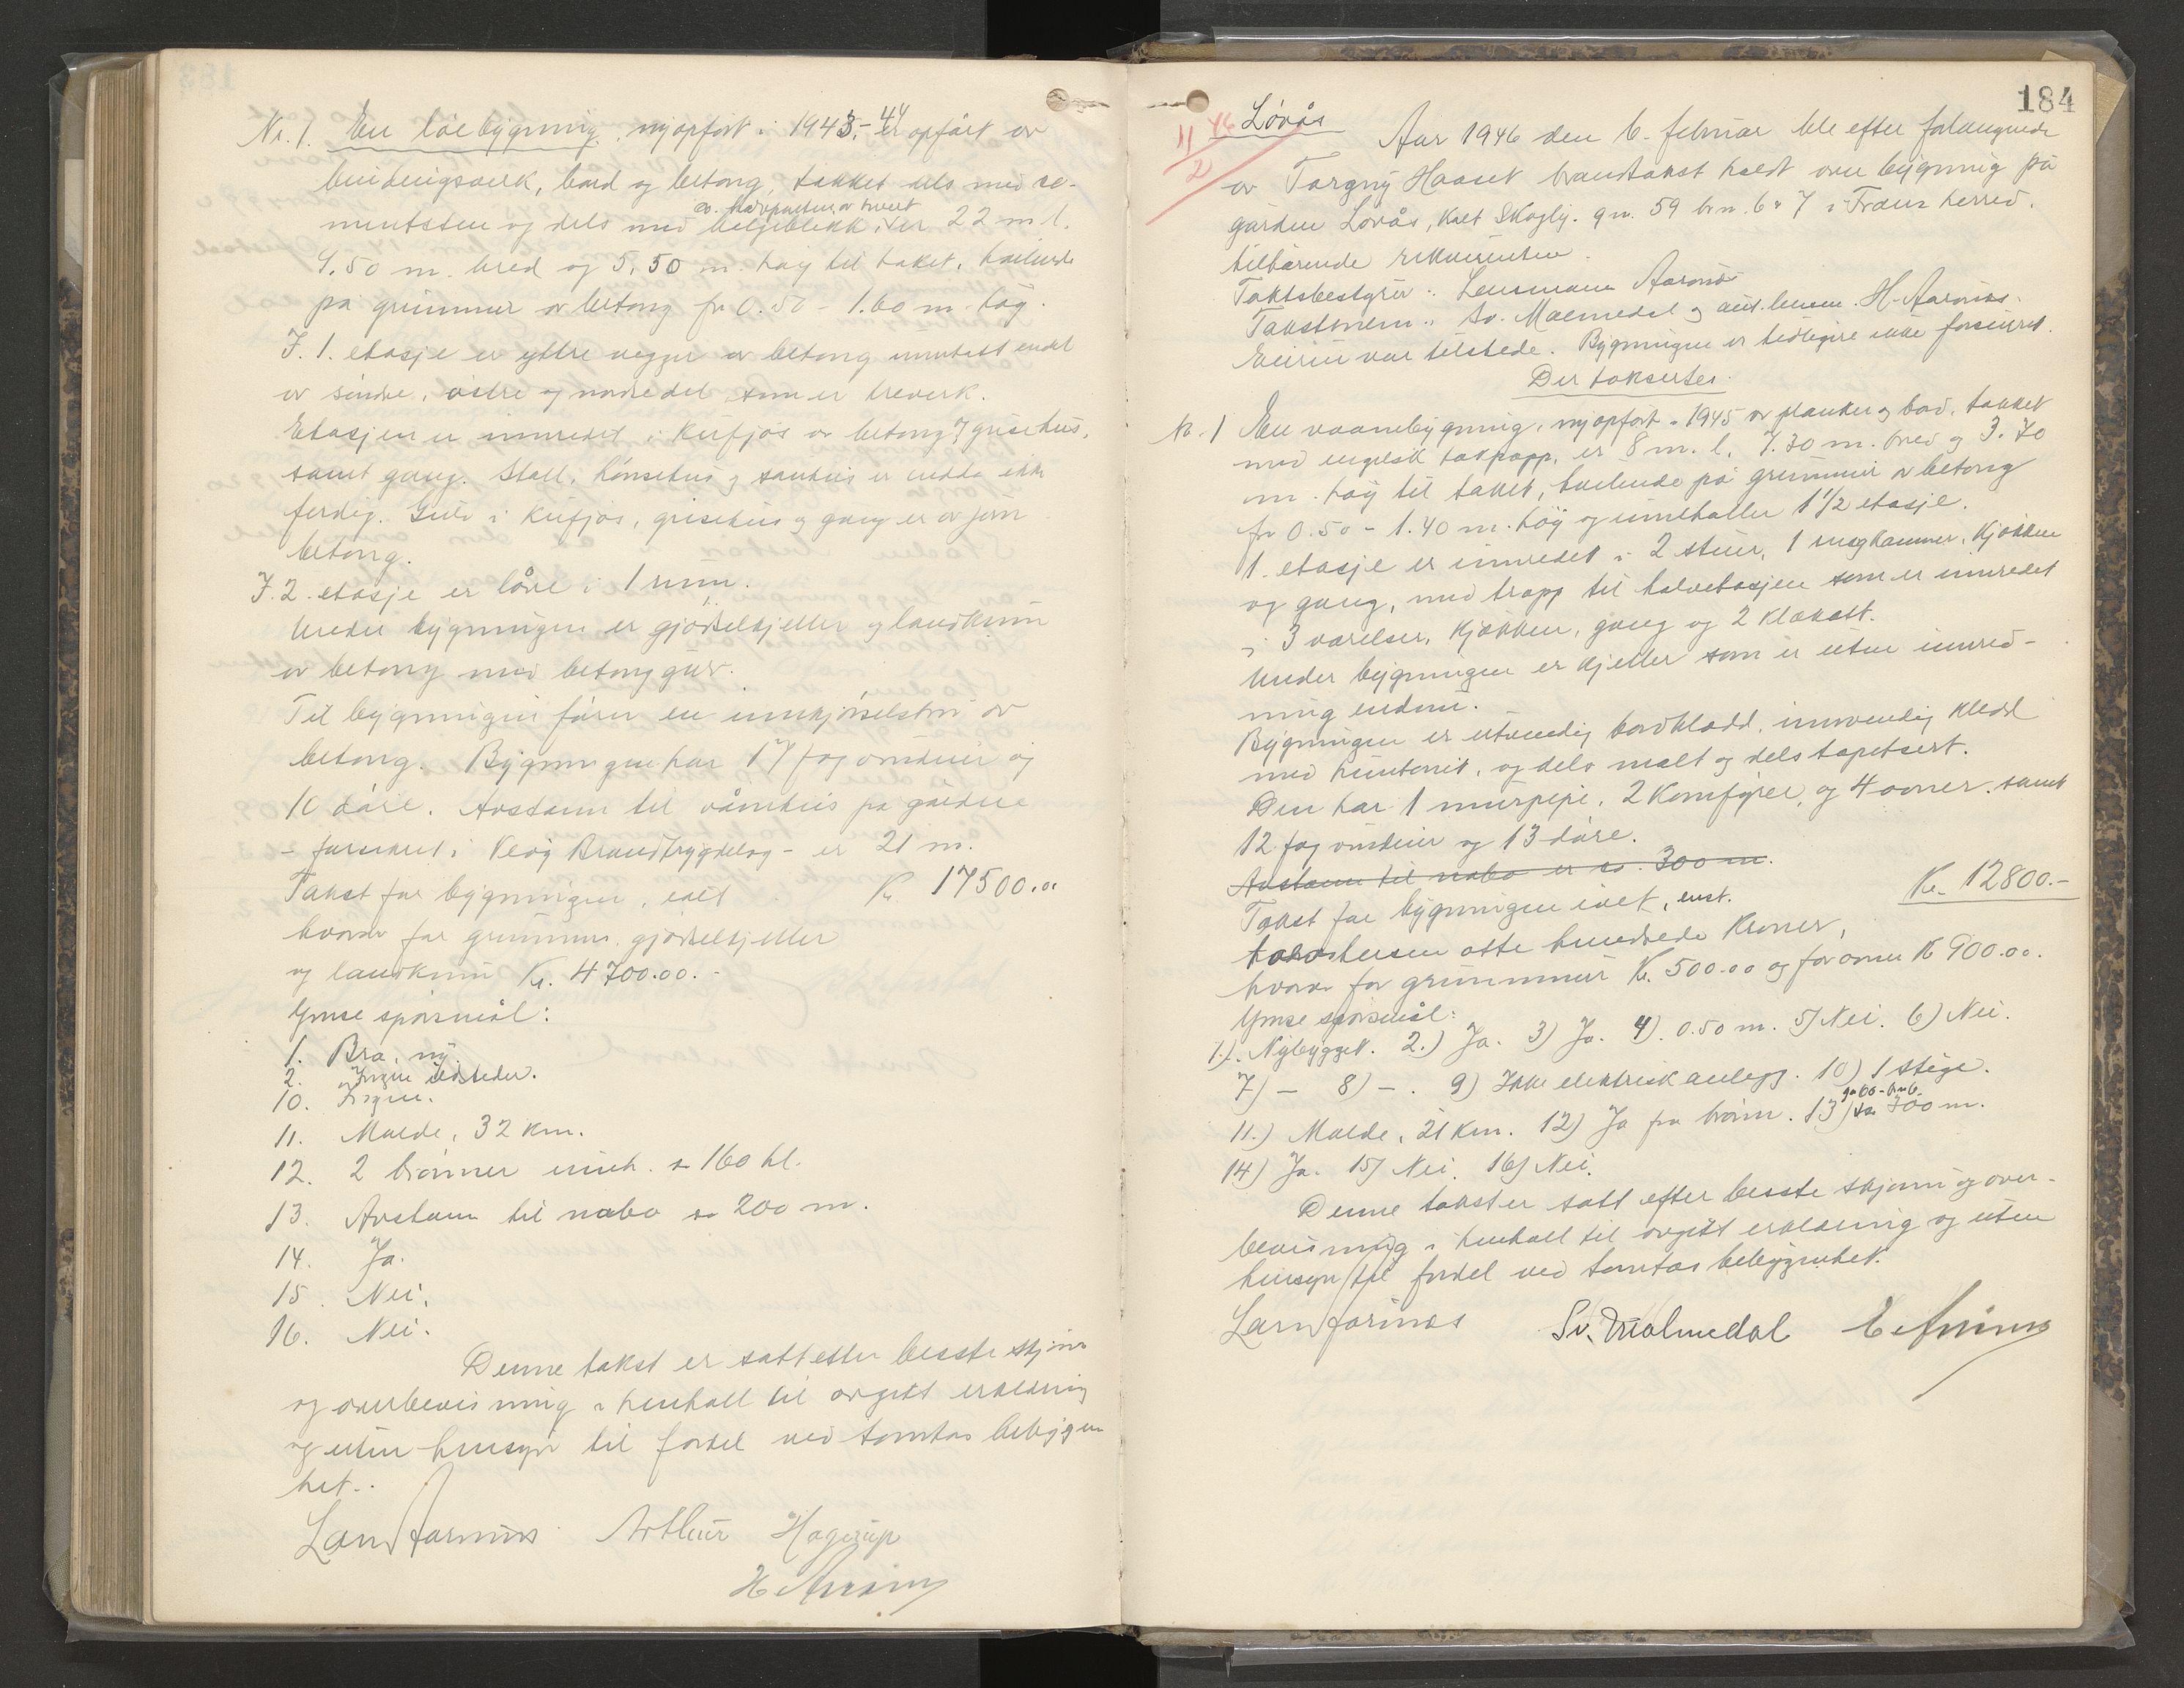 Nr. 1. En løebygning, nyopført i 1943-44 er opført av
bindingsverk, bord og betong, tekket dels med se-
mentsten og dels med bølgeblikk. Er 22 m. l.
ca. halvparten av hvert
9.50 m. bred og 5.50 m. høy til taket, hvilende
på grunnmur av betong fra 0.50 - 1.60 m. høg.
I 1. etasje er yttre vegger av betong unntatt endel
av søndre, østre og nordre del som er treverk.
Etasjen er innredet i kufjøs av betong, grisehus,
samt gang. Stall, hønsehus og sauhus er endda ikke
ferdig. Gulv i kufjøs, grisehus og gang er av jern
betong.
I 2. etasje er låve i 1 rum.
Under bygningen er gjødselkjeller og landkum
av betong med betonggulv.
Til bygningen fører en innkjørselsbru av
betong. Bygningen har 17 fag vinduer og
10 døre. Avstann til vånehus på gården
- forsikret i Veøy Brandtrygdelag - er 21 m.
Takst for bygningen, ialt Kr. 17500.00
hvorav for grunnmur, gjødselkjeller
og landkum Kr. 4700.00.-
Ymse spørsmål:
1. Bra, ny.
2. Ingen ildsteder.
10. Ingen.
11. Molde, 32 km.
12. 2 brønner inneh. ca 160 hl.
13. Avstann til nabo ca 200 m.
14. Ja.
15. Nei.
16. Nei.
Denne takst er satt etter beste skjønn
og overbevisning i henhold til avgitt erklæring
og uten hensyn til fordel ved tomtas bebygen
het..
Lars Aarønes Arthur Hagerup
H Aarønes
184
11/2 46
Løvås
Aar 1946 den 6. februar ble efter forlangende
av Torgny Haaset brandtakst holdt over bygning på
gården Løvås, kalt Skogly. gn. 59 bn. 6 & 7 i Fræna herred.
tilhørende rekvirenten.
Takstbestyrer: Lensmann Aarønes
Takstmenn: Sv. Malmedal og ass. lensm. H. Aarønes.
Eieren var tilstede. Bygningen er tidligere ikke forsikret.
Der taksertes:
No. 1 En vaanebygning, nyopført i 1945 av planker og bord, tekket
med engelsk takpapp, er 8 m. l, 7.30 m. bred og 3.70
m. høy til taket, hvilende på grunnmur av betong
fra 0.50 - 1.40 m. høy og inneholler 1 1/2 etasje.
1. etasje er innredet i 2 stuer, 1 sengkammer, kjøkken
og gang, med trapp til halvetasjen som er innredet
i 3 værelser, kjøkken, gang og 2 klækott.
Under bygningen er kjeller som er uten innred-
ning endnu.
Bygningen er utvendig bordklædd, innvendig kledd
med huntonit, og dels malt og dels tapetsert.
Den har 1 murpipe, 2 komfyrer, og 4 ovner. samt
12 fag vinduer og 13 døre.
Avstann til nabo er ca. 300 m.
Takst for bygningen ialt, enst. Kr. 12800.-
tolvtusen otte hundrede Kroner,
hvorav for grunnmur Kr. 500.00 og for ovner Kr 900.00.
Ymse spørsmål:
1.). Nybygget. 2.) Ja. 3) Ja. 4). 0.50 m. 5) Nei. 6) Nei.
7) - 8) - . 9) Ikke elektrisk anlegg. 10) 1 stige.
11.) Molde, 21 km. 12) Ja fra brønn. 13) ca 300 m.
14) Ja. 15) Nei. 16) Nei.
Denne takst er satt efter beste skjønn og over-
bevisning i henhold til avgitt erklæring og uten
hensyn til fordel ved tomtas bebygenhet.
Lars Aarønes Sv. Malmedal H Aarønes